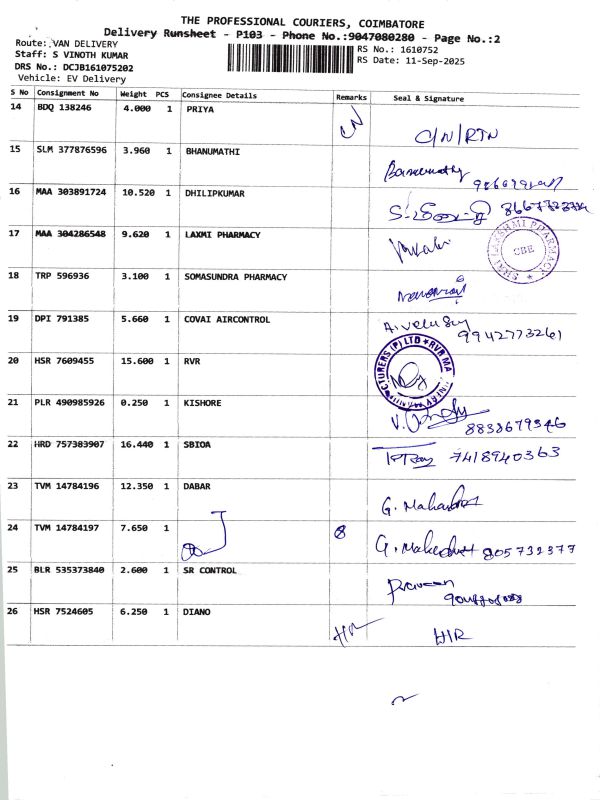 THE PROFESSIONAL COURIERS, COIMBATORE
Delivery Runsheet - P103 - Phone No.:9047080280 - Page No.:2
Route: VAN DELIVERY
RS No.: 1610752
Staff: S VINOTH KUMAR
RS Date: 11-Sep-2025
DRS No.: DCJB161075202
Vehicle: EV Delivery
S No Consignment No Weight PCS Consignee Details Remarks Seal & Signature
14 BDQ 138246 4.000 1 PRIYA C/N C/N/RTN
15 SLM 377876596 3.960 1 BHANUMATHI
16 MAA 303891724 10.520 1 DHILIPKUMAR
17 MAA 304286548 9.620 1 LAXMI PHARMACY
SHRI LAKSHMI PHARMACY CBE
18 TRP 596936 3.100 1 SOMASUNDRA PHARMACY
19 DPI 791385 5.660 1 COVAI AIRCONTROL 9942773261
20 HSR 7609455 15.600 1 RVR
21 PLR 490985926 0.250 1 KISHORE 8838679346
22 HRD 757383907 16.440 1 SBIOA 7418940363
23 TVM 14784196 12.350 1 DABAR G.
24 TVM 14784197 7.650 1 8 G. 805732377
25 BLR 535373840 2.600 1 SR CONTROL Praveen
26 HSR 7524605 6.250 1 DIANO